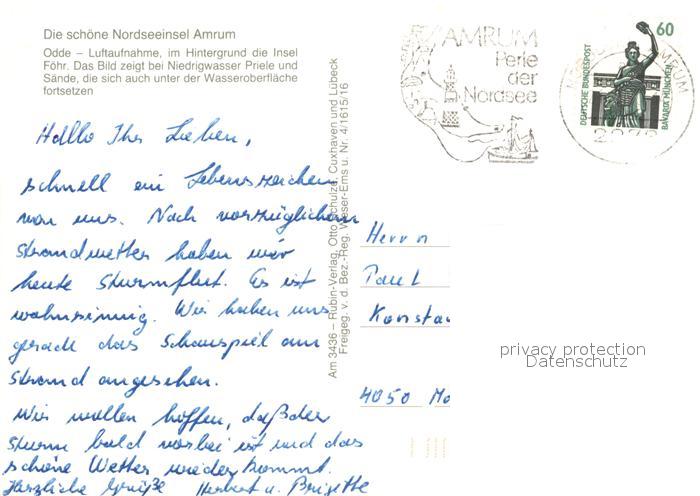 Die schöne Nordseeinsel Amrum
Odde – Luftaufnahme, im Hintergrund die Insel
Föhr. Das Bild zeigt bei Niedrigwasser Priele und
Sände, die sich auch unter der Wasseroberfläche
fortsetzen
Hallo Ihr Lieben,
schnell ein Lebenszeichen
von uns. Nach vorzüglichem
Strandwetter haben wir
heute Sturmflut. Es ist
wahnsinnig. Wir haben uns
gerade das Schauspiel am
Strand angesehen.
Wir wollen hoffen, daß der
Sturm bald vorbei ist und das
schöne Wetter wieder kommt.
Herzliche Grüße Herbert u. Brigitte
Am 3436 – Rubin-Verlag, Otto Schulze, Cuxhaven und Lübeck
Freigeg. v. d. Bez.-Reg. Weser-Ems u. Nr. 4/1615/16
AMRUM
Perle
der
Nordsee
60
DEUTSCHE BUNDESPOST
BAVARIA MÜNCHEN
AMRUM
Herrn
Paul
Konsta
4050 Mo
privacy protection
Datenschutz